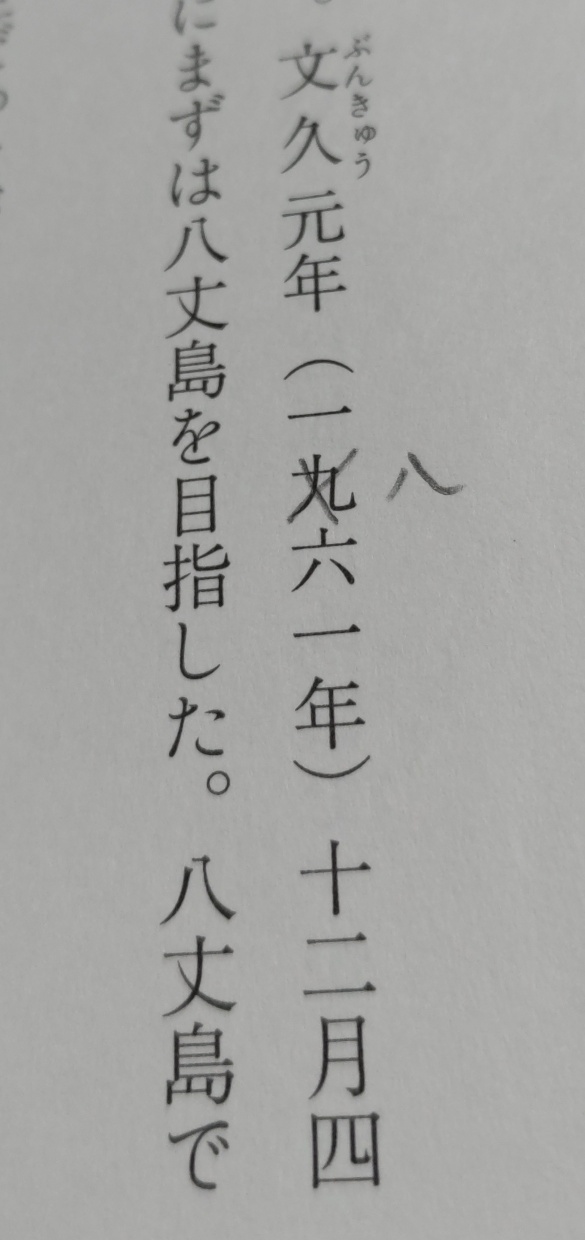 。文久元年(一丸六一年)十二月四
ぶんきゅう
八
にまずは八丈島を目指した。八丈島で